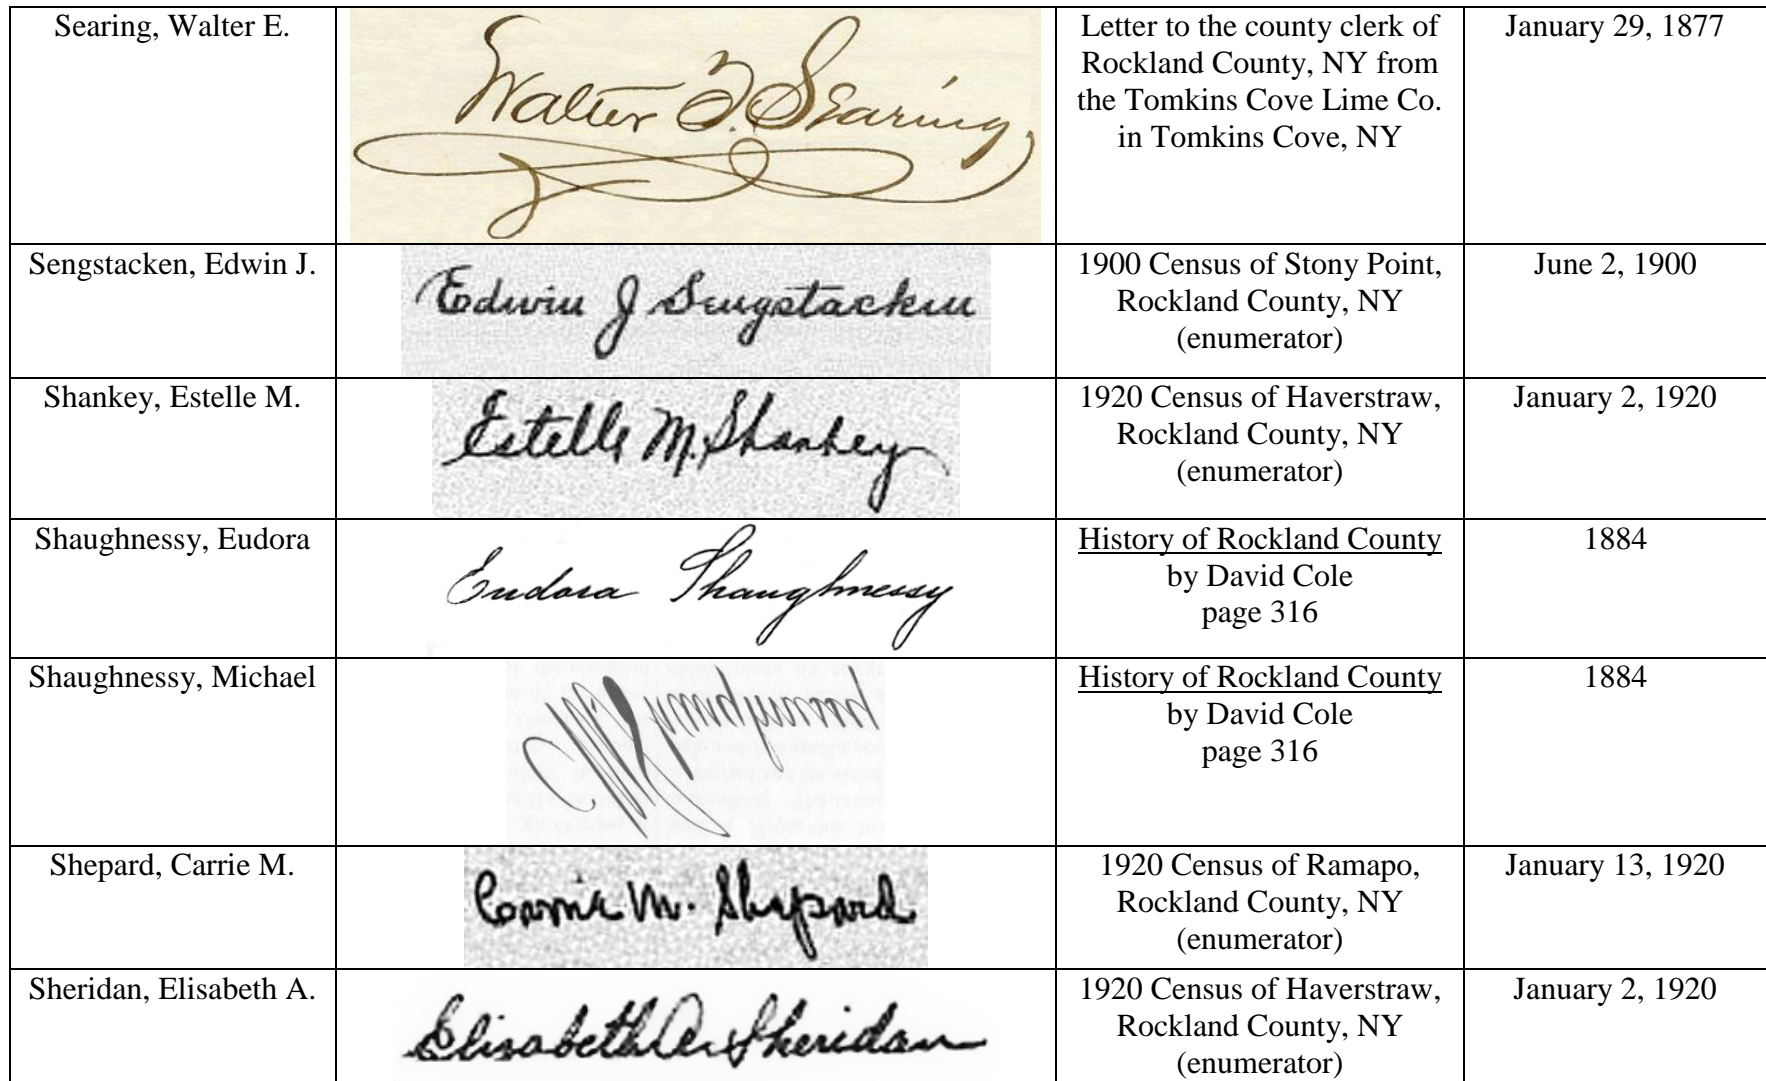 Searing, Walter E.
Walter F. Searing
Letter to the county clerk of
Rockland County, NY from
the Tomkins Cove Lime Co.
in Tomkins Cove, NY
January 29, 1877
Sengstacken, Edwin J.
Edwin J Sengstacken
1900 Census of Stony Point,
Rockland County, NY
(enumerator)
June 2, 1900
Shankey, Estelle M.
Estelle M. Shankey
1920 Census of Haverstraw,
Rockland County, NY
(enumerator)
January 2, 1920
Shaughnessy, Eudora
Eudora Shaughnessy
History of Rockland County
by David Cole
page 316
1884
Shaughnessy, Michael
History of Rockland County
by David Cole
page 316
1884
Shepard, Carrie M.
Carrie M. Shepard
1920 Census of Ramapo,
Rockland County, NY
(enumerator)
January 13, 1920
Sheridan, Elisabeth A.
Elisabeth A. Sheridan
1920 Census of Haverstraw,
Rockland County, NY
(enumerator)
January 2, 1920